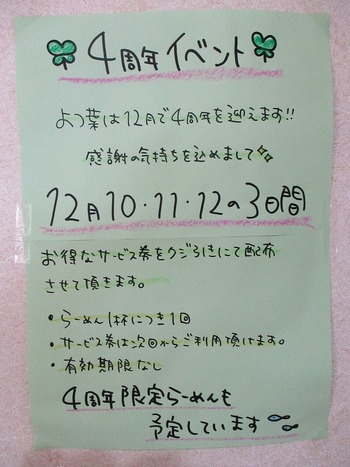 4周年イベント
よつ葉は12月で4周年を迎えます!!
感謝の気持ちを込めまして
12月10・11・12の3日間
お得なサービス券をクジ引きにて配布
させて頂きます。
・らーめん1杯につき1回
・サービス券は次回からご利用頂けます。
・有効期限なし
4周年限定らーめんも
予定しています